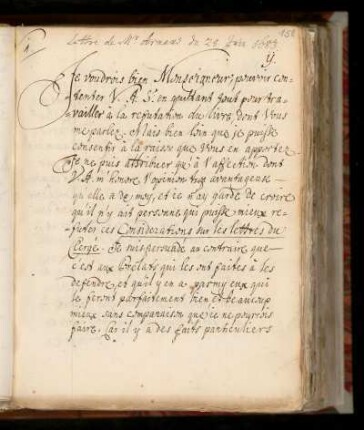 Lettre de Mr Arnaud du 23 Juin 1683
158
Je voudrois bien Monseigneur, pouvoir con-
-tenter V. A. S. en quittant tout pour tra-
-vailler à la refutation du livre dont Vous
me parlez. Mais bien loin que je puisse
consentir à la raison que Vous en apportez
Je ne puis attribuer qu'à l'affection dont
V. A. m'honore l'opinion trop avantageuse
qu'elle a de moy, et je n'ay garde de croire
qu'il n'y ait personne qui puisse mieux re-
-futer ces Considerations sur les lettres du
Clergé. Je suis persuadé au contraire que
c'est aux Prelats qui les ont faites à les
defendre, et qu'il y en a parmy eux qui
le feront parfaitement bien et beaucoup
mieux sans comparaison que je ne pourrois
faire. Car il y a des faits particuliers